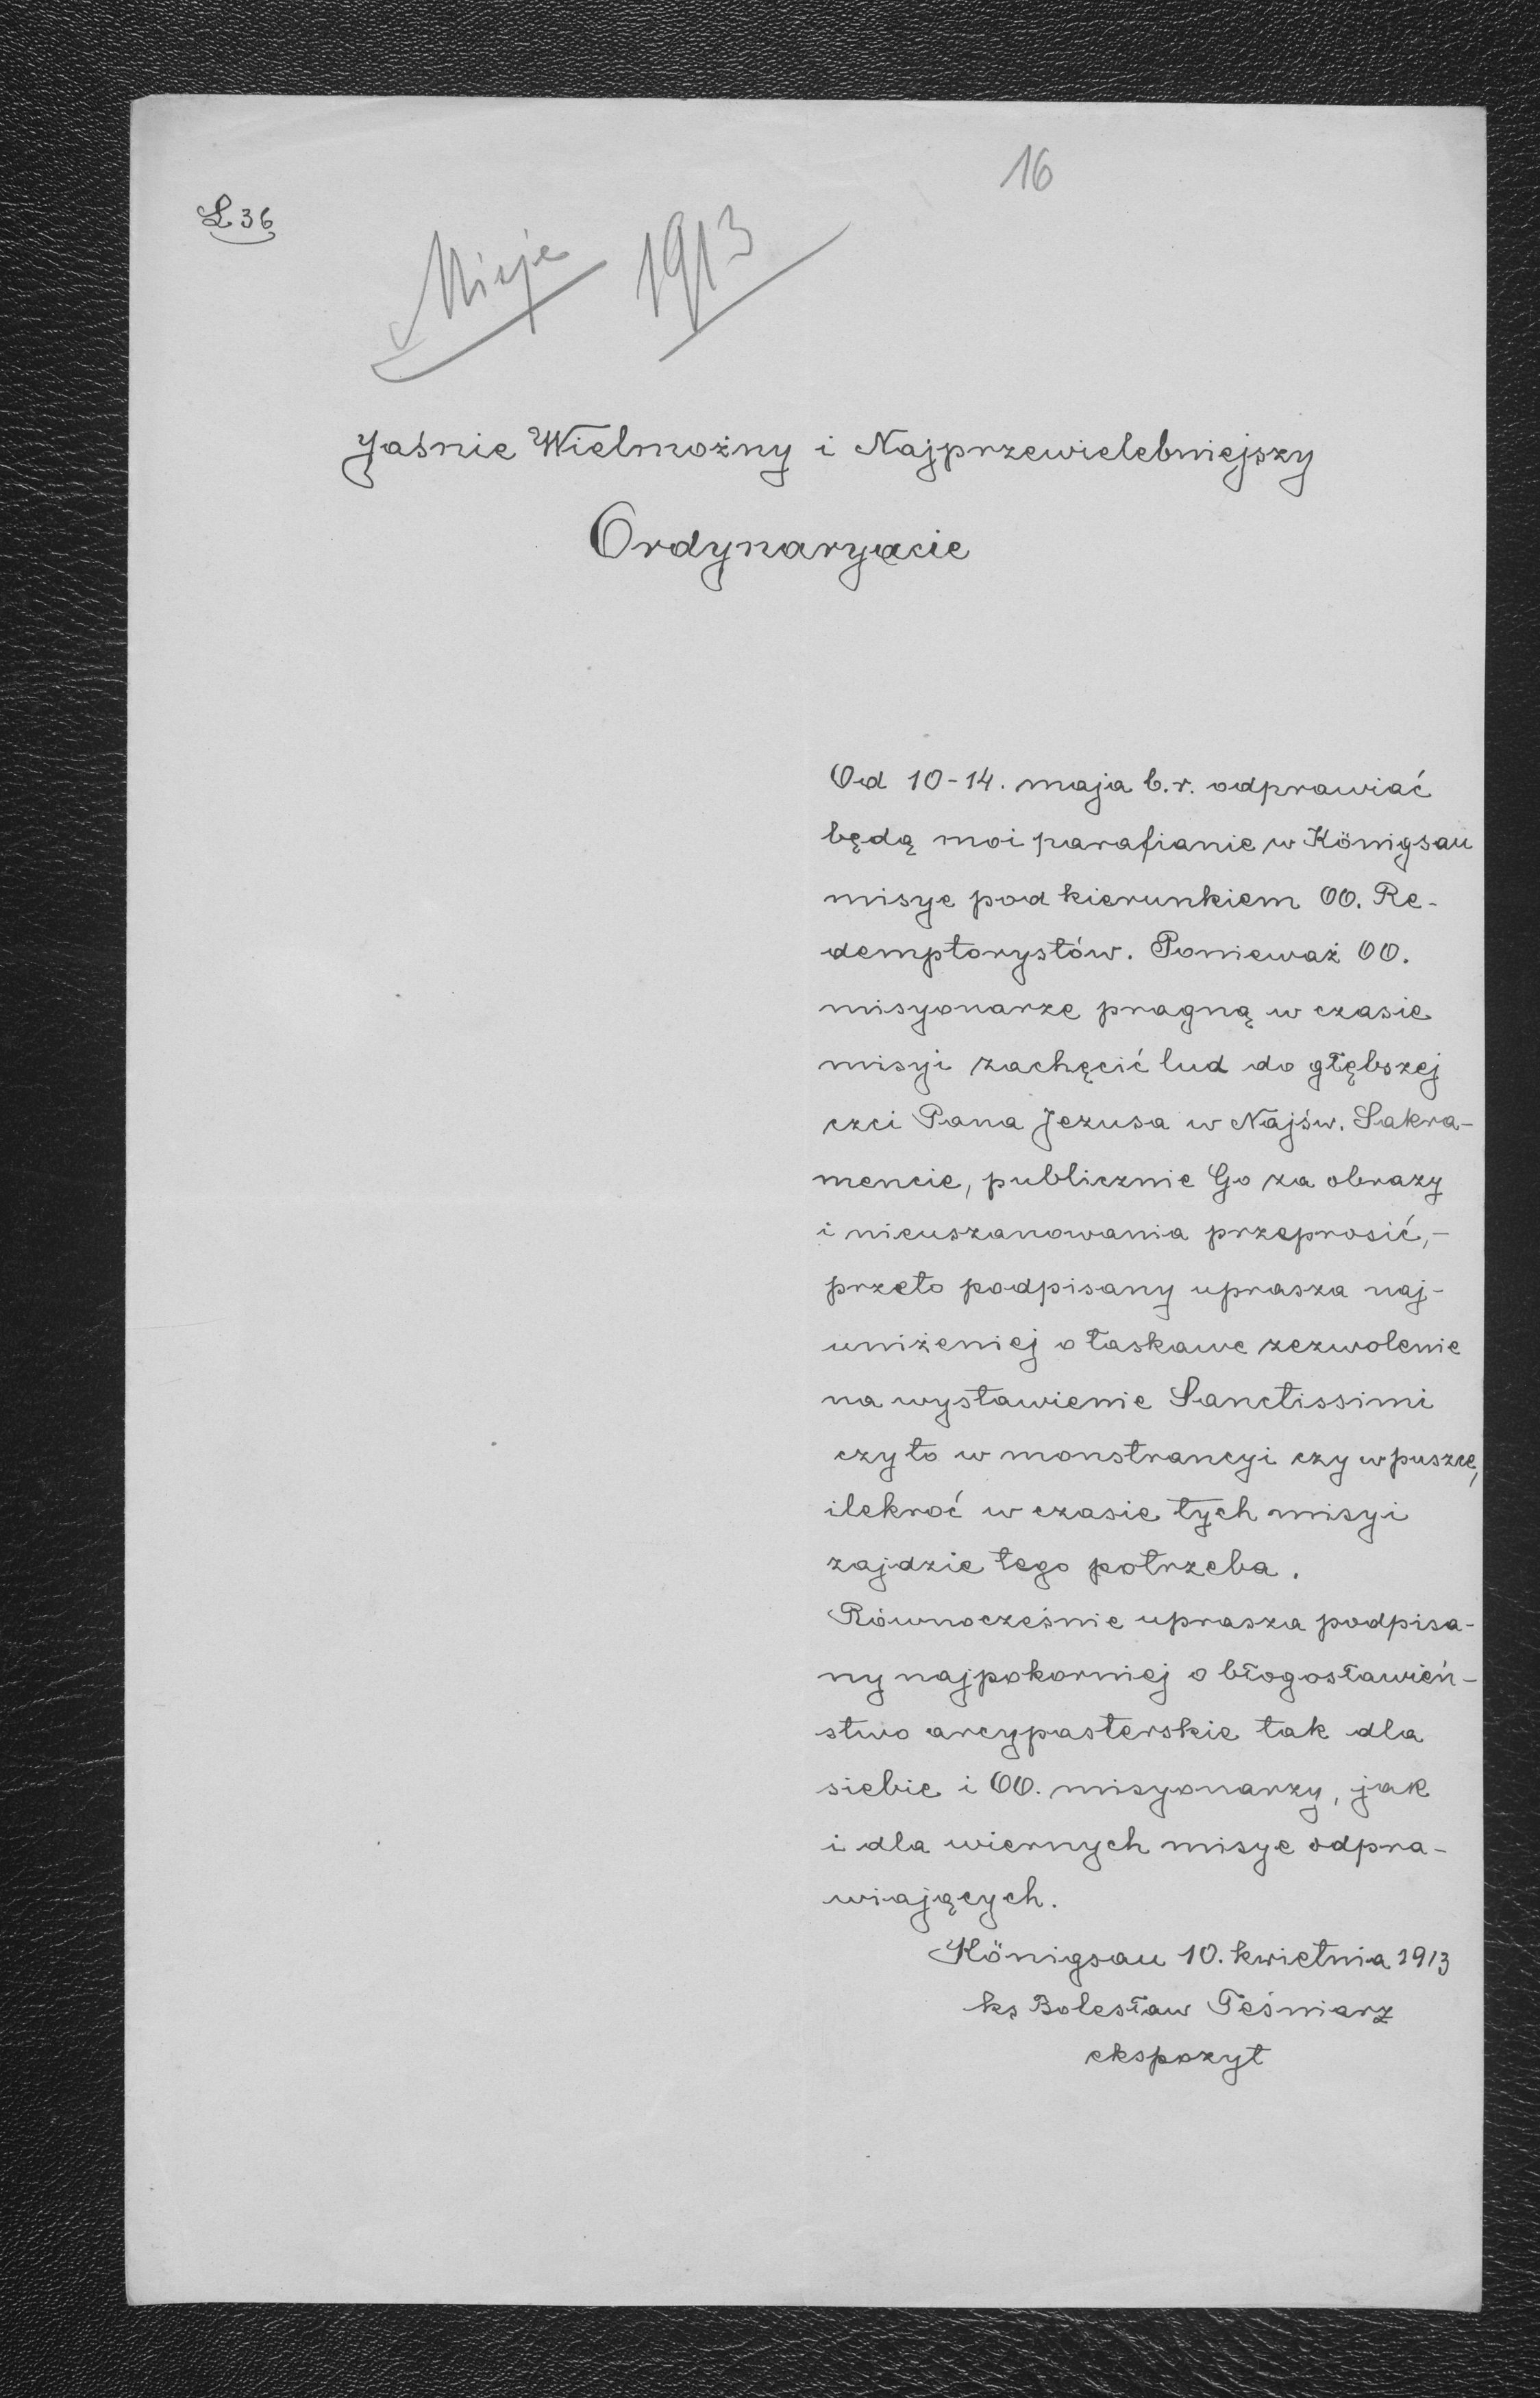 16
L 36
Misje 1913
Jaśnie Wielmożny i Najprzewielebniejszy
Ordynaryacie
Od 10-14. maja b.r. odprawiać
będą moi parafianie w Königsau
misye pod kierunkiem OO. Re-
demptorystów. Ponieważ OO.
misyonarze pragną w czasie
misyi zachęcić lud do głębszej
czci Pana Jezusa w Najśw. Sakra-
mencie, publicznie Go za obrazy
i nieuszanowania przeprosić,-
przeto podpisany uprasza naj-
uniżeniej o łaskawe zezwolenie
na wystawienie Sanctissimi
czy to w monstrancyi czy w puszce,
ilekroć w czasie tych misyi
zajdzie tego potrzeba.
Równocześnie uprasza podpisa-
ny najpokorniej o błogosławień-
stwo arcypasterskie tak dla
siebie i OO. misyonarzy, jak
i dla wiernych misye odpra-
wiających.
Königsau 10. kwietnia 1913
ks Bolesław Teśniarz
ekspozyt